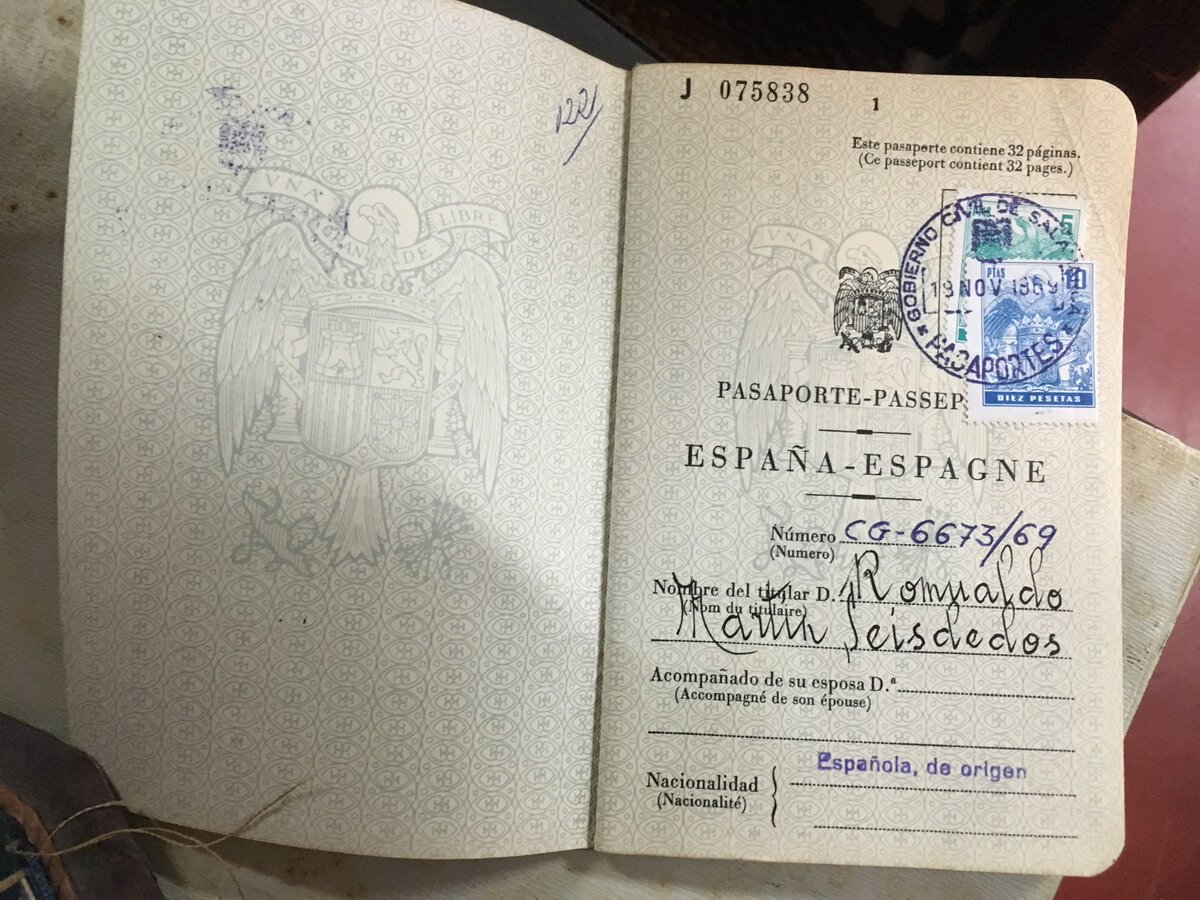 1221/
VNA
LIBRE
GRANDE
J 075838
1
Este pasaporte contiene 32 páginas.
(Ce passeport contient 32 pages.)
GOBIERNO CIVIL DE SALAMANCA
5
PTAS 10
18 NOV 1969
PASAPORTES
DIEZ PESETAS
VNA
PASAPORTE-PASSEP
ESPAÑA-ESPAGNE
Número CG-6673/69
(Numero)
Nombre del titular D. Romualdo
(Nom du titulaire)
Martín Seisdedos
Acompañado de su esposa D.ª
(Accompagné de son épouse)
Española, de origen
Nacionalidad
(Nacionalité)